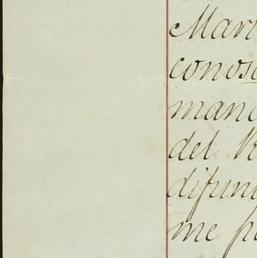 Mar
conos
man
del R
difun
me p